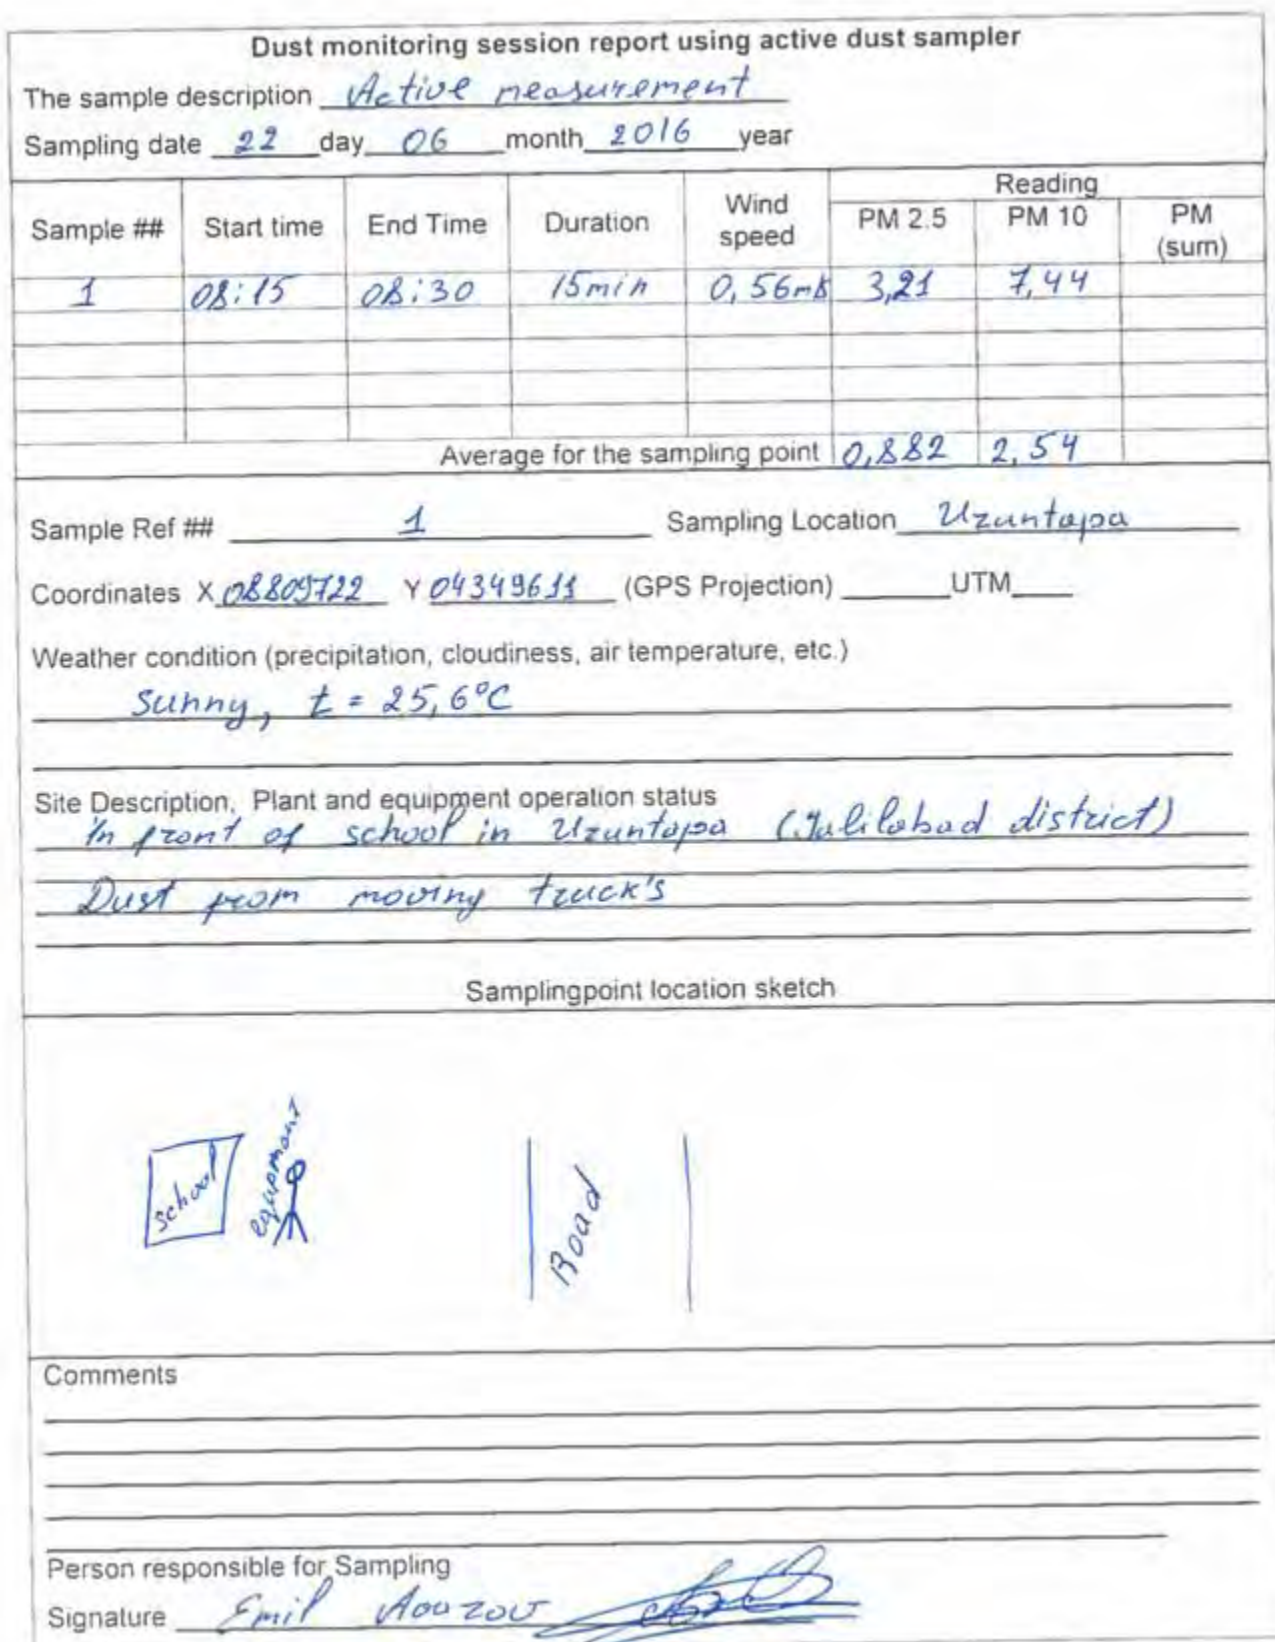 Dust monitoring session report using active dust sampler
The sample description Active measurement
Sampling date 22 day 06 month 2016 year
Sample ## Start time End Time Duration Wind speed Reading PM 2.5 PM 10 PM (sum)
1 08:15 08:30 15min 0,56m/s 3,21 7,44
Average for the sampling point 0,882 2,54
Sample Ref ## 1 Sampling Location Uzuntapa
Coordinates X 08809722 Y 04349611 (GPS Projection) UTM
Weather condition (precipitation, cloudiness, air temperature, etc.)
sunny, t = 25,6°C
Site Description, Plant and equipment operation status
In front of school in Uzuntapa (Jalilabad district)
Dust from moving truck's
Samplingpoint location sketch
school
equipment
Road
Comments
Person responsible for Sampling
Signature Emil